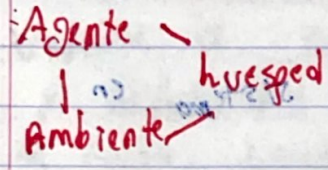 Agente
huesped
Ambiente